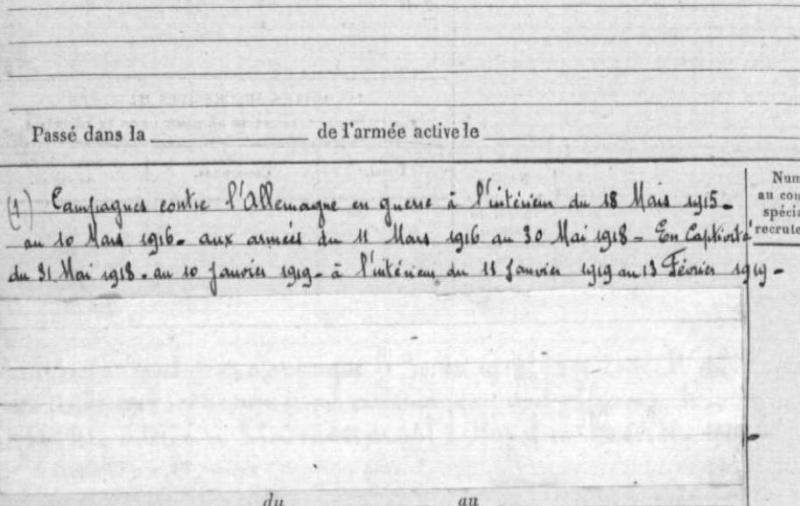 Passé dans la ____ de l'armée active le ____
Num
au cou
spécia
recrute
(1) Campagnes contre l'Allemagne en guerre à l'intérieur du 18 Mais 1915 -
au 10 Mars 1916 - aux armées du 11 Mars 1916 au 30 Mai 1918 - En Captivité
du 31 Mai 1918 - au 10 Janvier 1919 - à l'intérieur du 11 Janvier 1919 au 13 Février 1919 -
du au